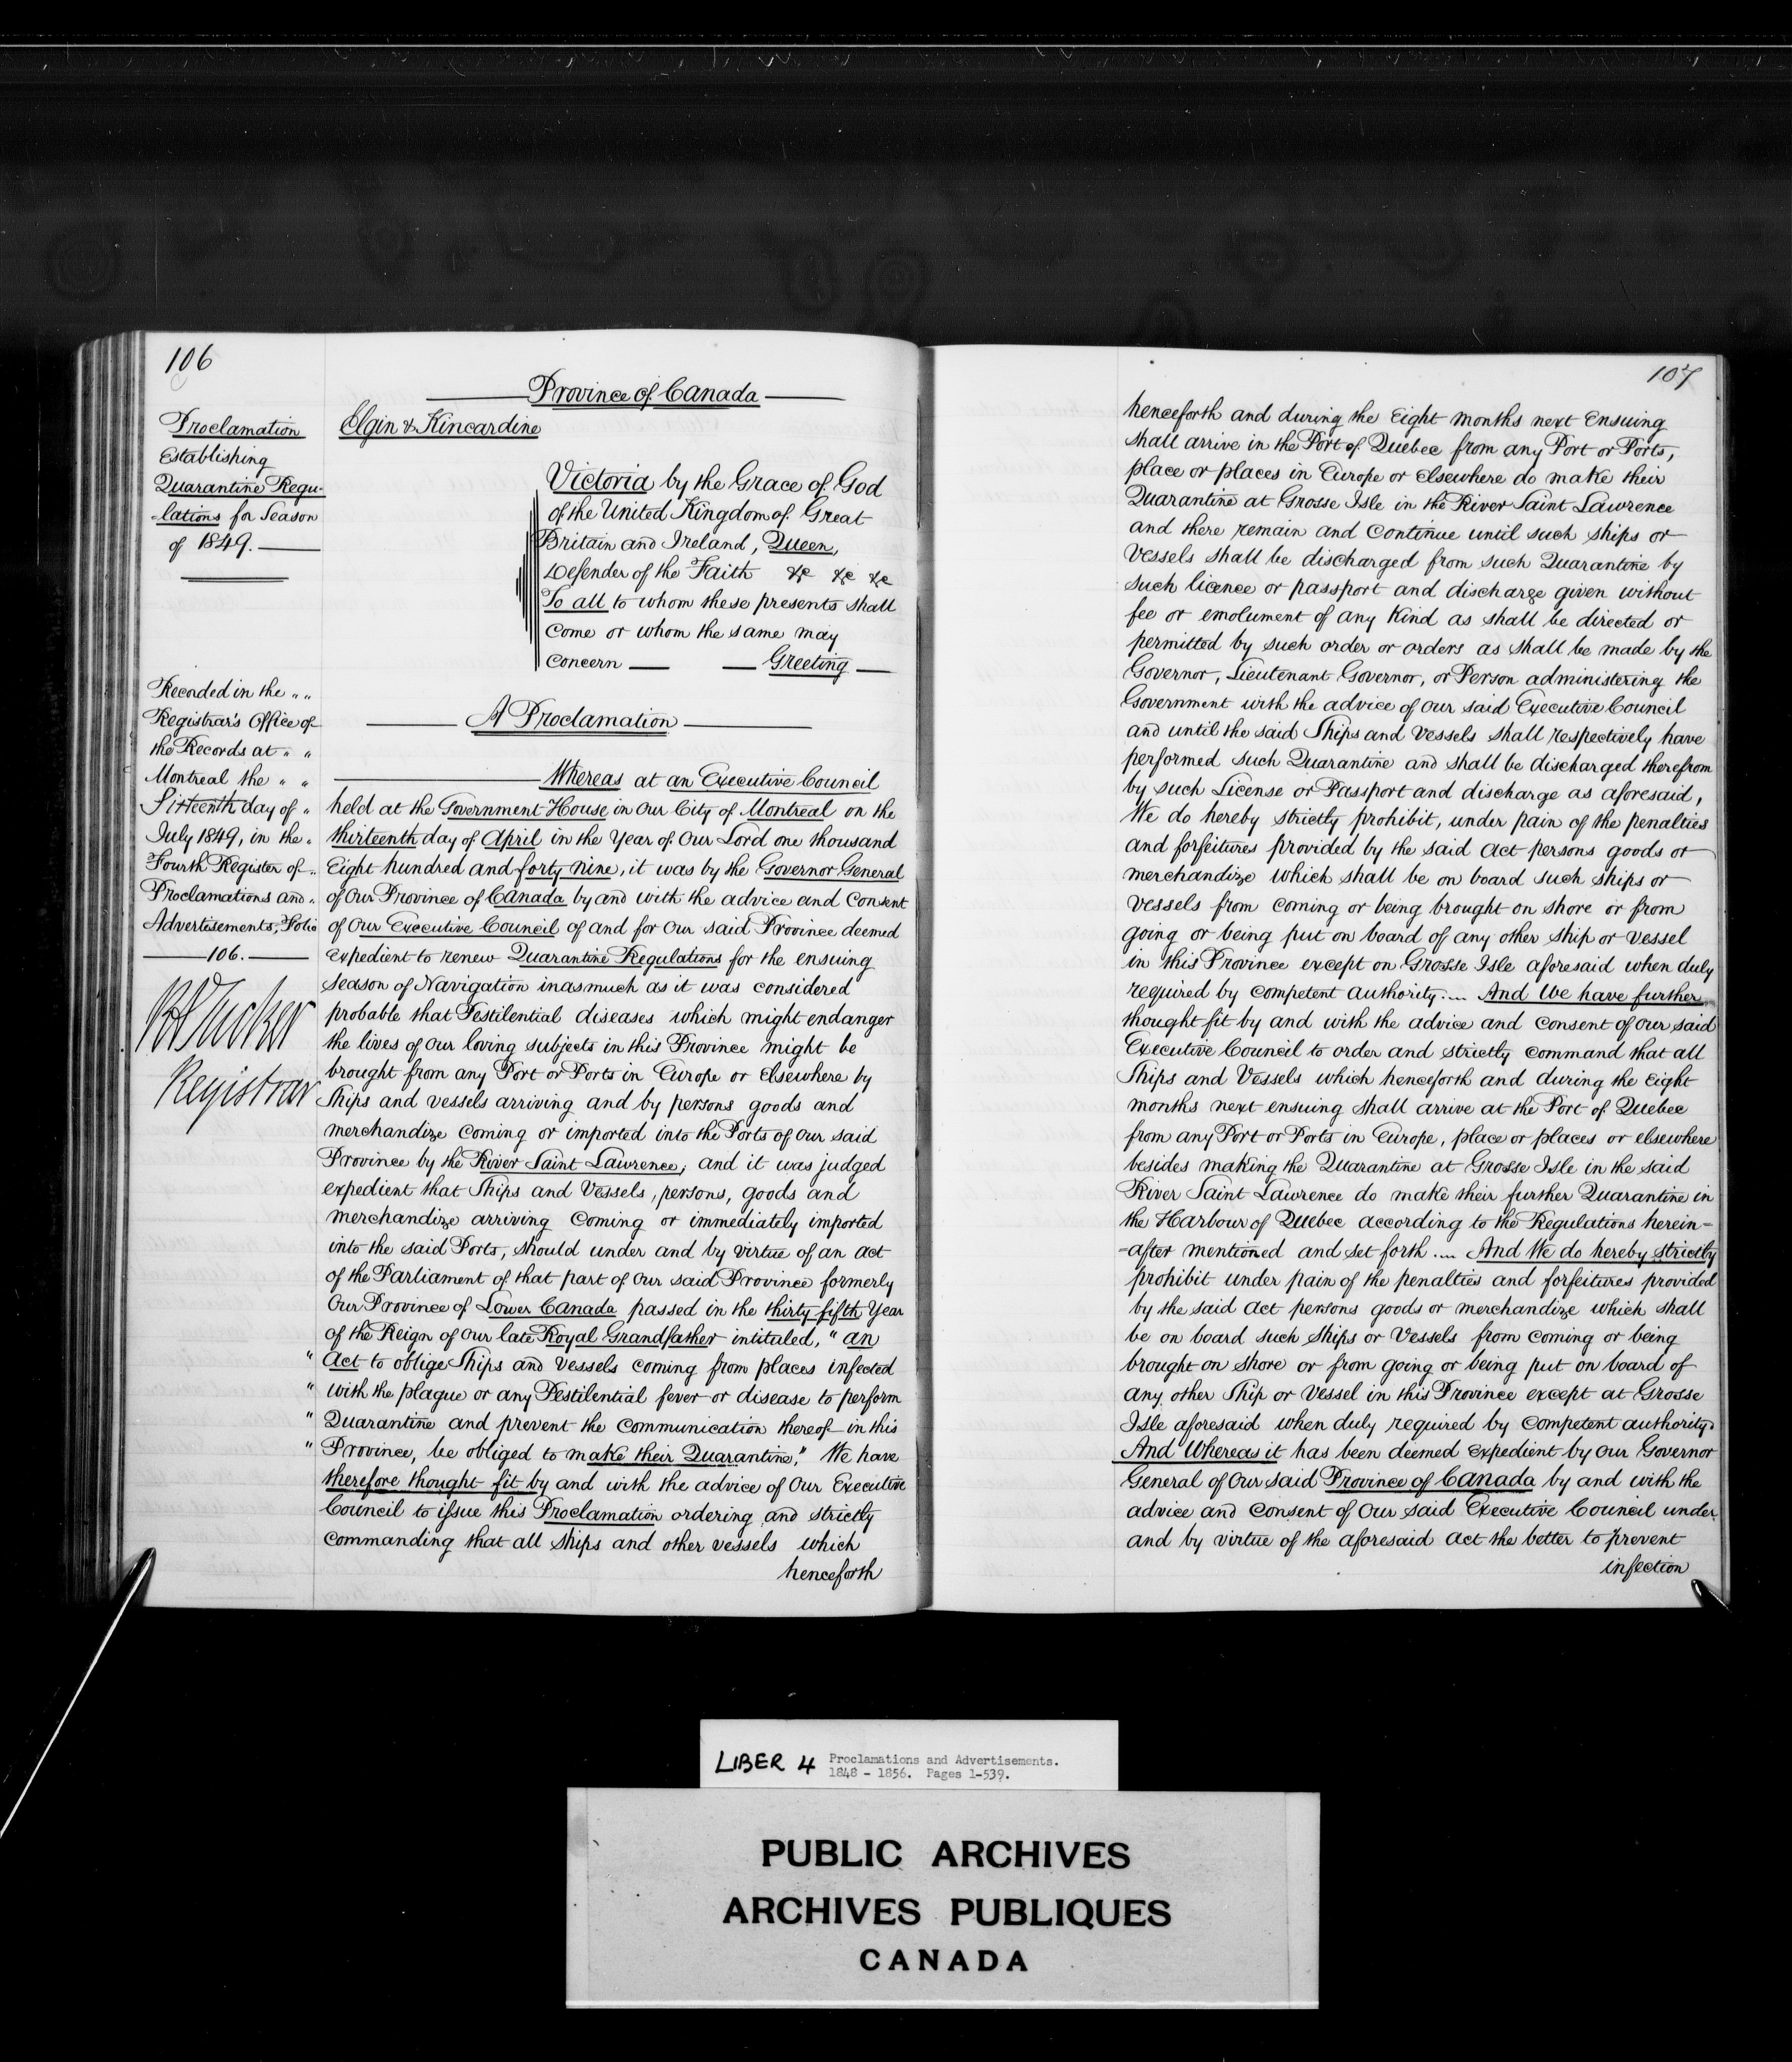 106
Proclamation
Establishing
Quarantine Regu-
-lations for Season
of 1849.
Recorded in the " "
Registrar's Office of
the Records at " "
Montreal the " "
Sixteenth day of "
July 1849, in the "
Fourth Register of "
Proclamations and "
Advertisements, Folio
106.
RATucker
Registrar
Province of Canada
Elgin & Kincardine
Victoria by the Grace of God
of the United Kingdom of Great
Britain and Ireland, Queen,
Defender of the Faith &c &c &c
To all to whom these presents shall
come or whom the same may
concern — — Greeting —
A Proclamation
Whereas at an Executive Council
held at the Government House in Our City of Montreal on the
thirteenth day of April in the Year of Our Lord one thousand
Eight hundred and forty nine, it was by the Governor General
of Our Province of Canada by and with the advice and Consent
of Our Executive Council of and for Our said Province deemed
expedient to renew Quarantine Regulations for the ensuing
season of Navigation inasmuch as it was considered
probable that Pestilential diseases which might endanger
the lives of Our loving subjects in this Province might be
brought from any Port or Ports in Europe or Elsewhere by
Ships and vessels arriving and by persons goods and
merchandize coming or imported into the Ports of Our said
Province by the River Saint Lawrence, and it was judged
expedient that Ships and Vessels, persons, goods and
merchandize arriving coming or immediately imported
into the said Ports, should under and by virtue of an act
of the Parliament of that part of Our said Province formerly
Our Province of Lower Canada passed in the thirty fifth Year
of the Reign of Our late Royal Grandfather intituled, " an
" Act to oblige Ships and Vessels coming from places infected
" with the plague or any Pestilential fever or disease to perform
" Quarantine and prevent the Communication thereof in this
" Province, be obliged to make their Quarantine," We have
therefore thought fit by and with the advice of Our Executive
Council to issue this Proclamation ordering and strictly
commanding that all Ships and other vessels which
henceforth
107
henceforth and during the Eight months next Ensuing
shall arrive in the Port of Quebec from any Port or Ports,
place or places in Europe or Elsewhere do make their
Quarantine at Grosse Isle in the River Saint Lawrence
and there remain and Continue until such ships or
Vessels shall be discharged from such Quarantine by
such licence or passport and discharge given without
fee or emolument of any Kind as shall be directed or
permitted by such order or orders as shall be made by the
Governor, Lieutenant Governor, or Person administering the
Government with the advice of Our said Executive Council
and until the said Ships and Vessels shall respectively have
performed such Quarantine and shall be discharged therefrom
by such License or Passport and discharge as aforesaid,
We do hereby strictly prohibit, under pain of the penalties
and forfeitures provided by the said act persons goods or
merchandize which shall be on board such ships or
Vessels from coming or being brought on shore or from
going or being put on board of any other ship or vessel
in this Province except on Grosse Isle aforesaid when duly
required by competent authority .... And We have further
thought fit by and with the advice and consent of Our said
Executive Council to order and strictly command that all
Ships and Vessels which henceforth and during the Eight
months next ensuing shall arrive at the Port of Quebec
from any Port or Ports in Europe, place or places or elsewhere
besides making the Quarantine at Grosse Isle in the said
River Saint Lawrence do make their further Quarantine in
the Harbour of Quebec according to the Regulations herein=
=after mentioned and set forth .... And We do hereby strictly
prohibit under pain of the penalties and forfeitures provided
by the said act persons goods or merchandize which shall
be on board such Ships or Vessels from coming or being
brought on shore or from going or being put on board of
any other Ship or Vessel in this Province except at Grosse
Isle aforesaid when duly required by competent authority.
And Whereas it has been deemed expedient by Our Governor
General of Our said Province of Canada by and with the
advice and Consent of Our said Executive Council under
and by virtue of the aforesaid act the better to prevent
infection
LIBER 4 Proclamations and Advertisements.
1848 - 1856. Pages 1-539.
PUBLIC ARCHIVES
ARCHIVES PUBLIQUES
CANADA